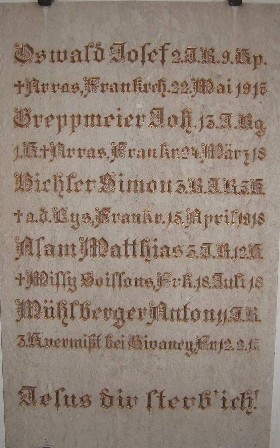 Oswald Josef 2.J.R.9.Kp.
†Arras, Frankrch. 22. Mai 1915
Greppmeier Joh. 15.J.Rg.
1.K†Arras, Frankr. 24. März 18
Bichler Simon 3.R.J.R.3.K
† a.d. Lys, Frankr. 15. April 1918
Asam Matthias 5.J.R.12.K
† Missy Soissons, Frk. 18. Juli 18
Mühlberger Anton 11.J.R.
3.K vermißt bei Givancy, Fr. 12.9.17
Jesus dir sterb' ich!